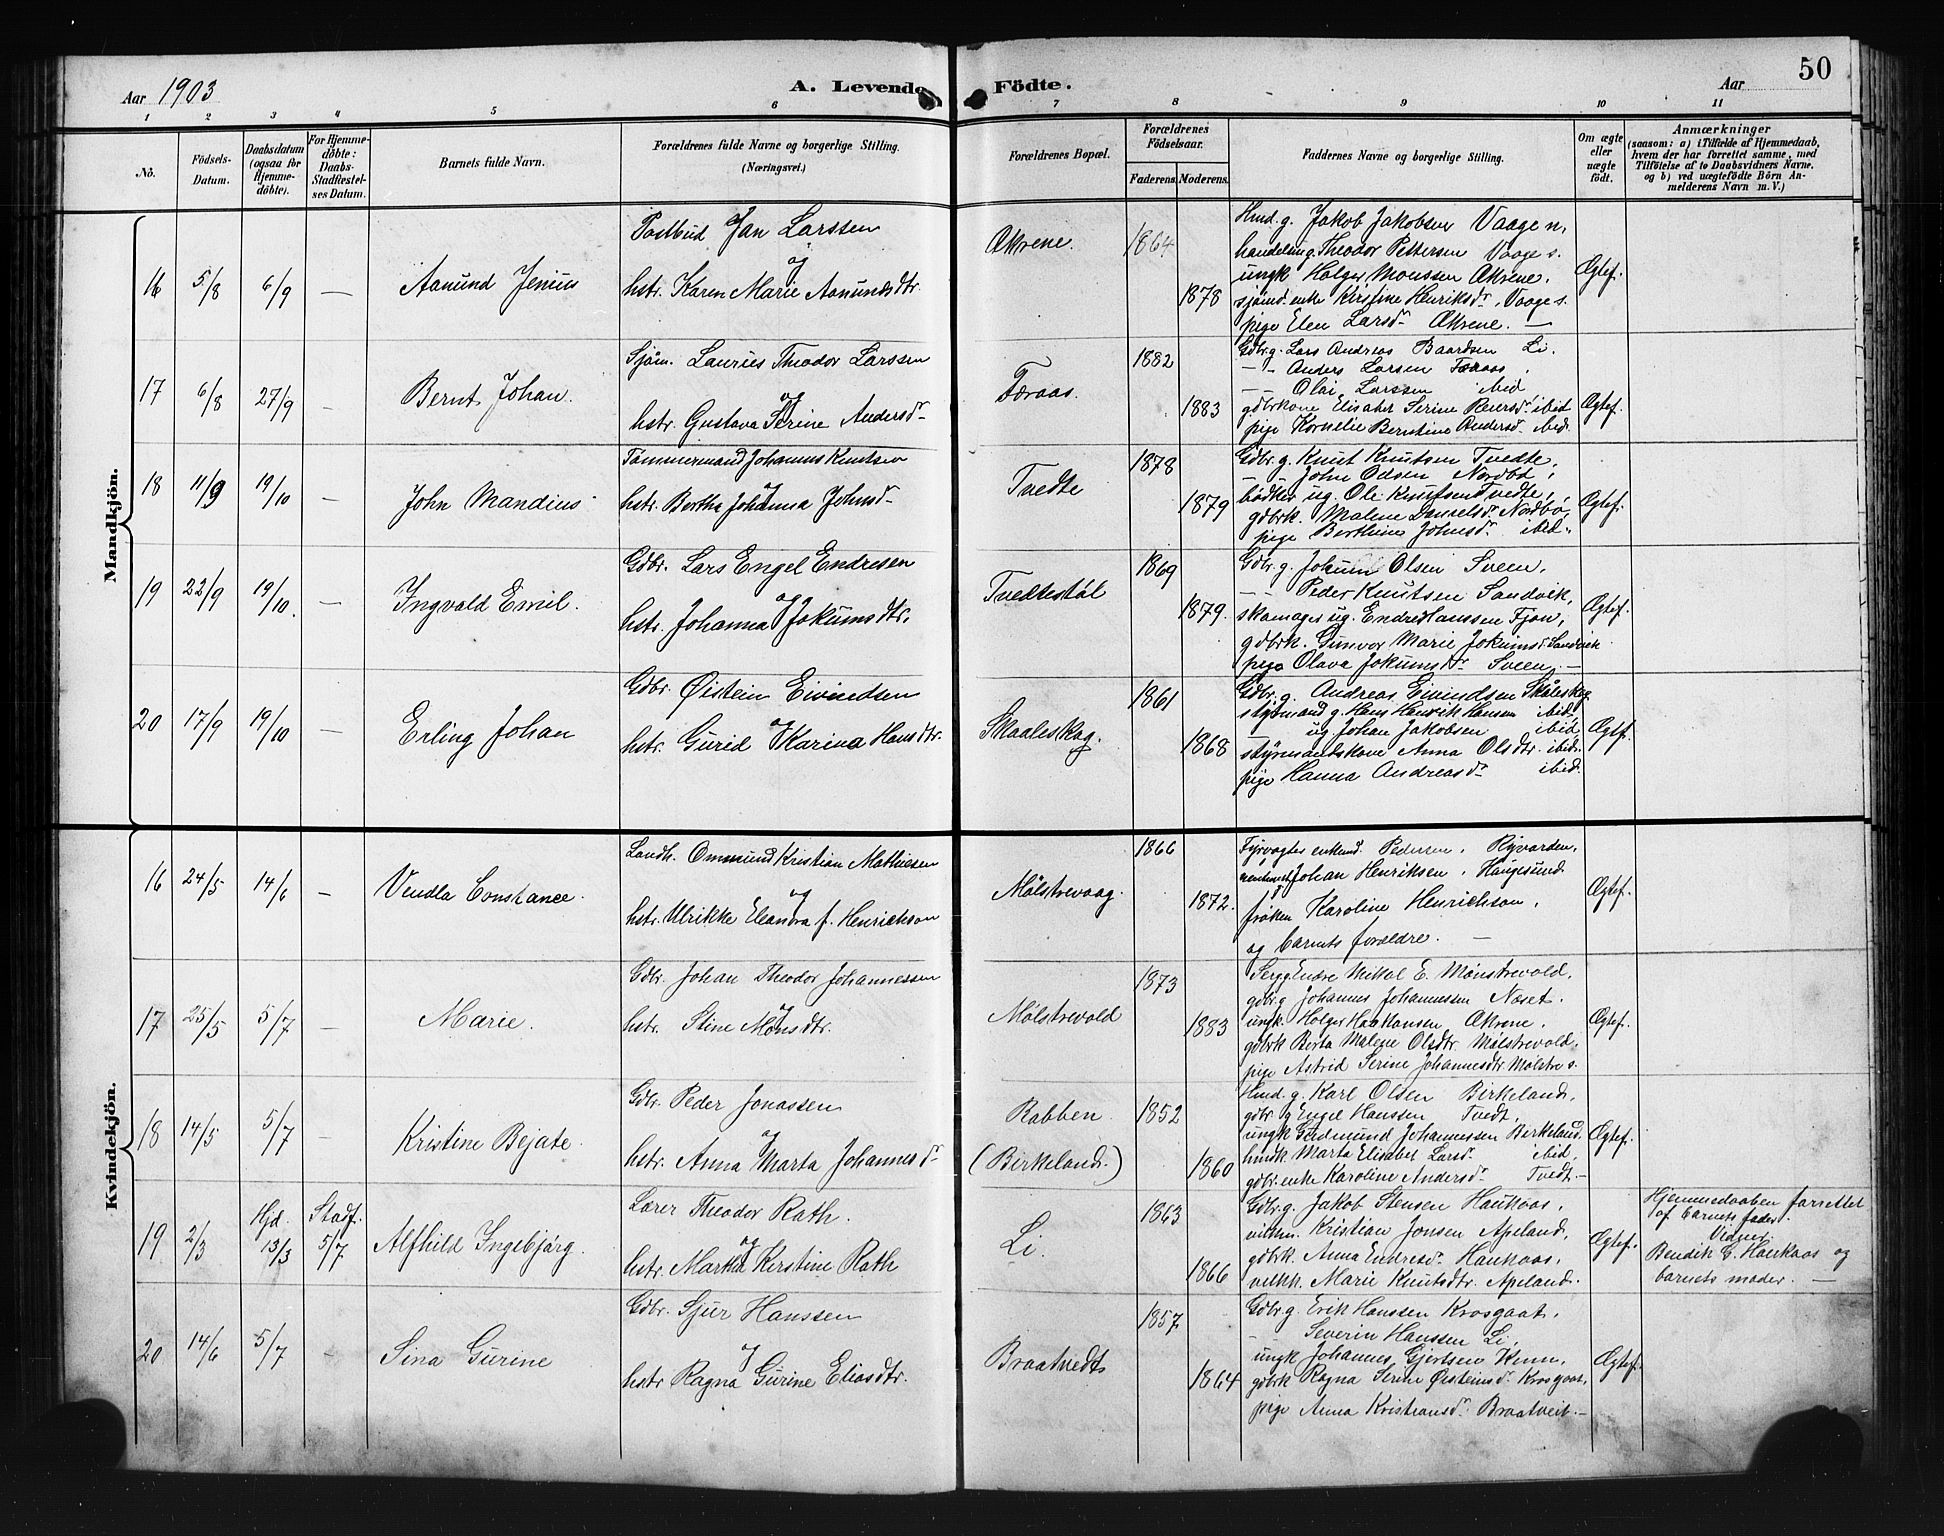 Aar 1903
A. Levende Födte.
Aar
50
1 2 3 4 5 6 7 8 9 10 11
No.
Födsels-Datum.
Daabsdatum (ogsaa for Hjemme-döbte).
For Hjemme-döbte: Daabs-Stadfestel-ses Datum.
Barnets fulde Navn.
Forældrenes fulde Navne og borgerlige Stilling. (Næringsvei.)
Forældrenes Bopæl.
Forældrenes Födselsaar.
Faderens. Moderens.
Faddernes Navne og borgerlige Stilling.
Om ægte eller uægte födt.
Anmærkninger
(saasom: a) i Tilfælde af Hjemmedaab, hvem der har forrettet samme, med Tilföielse af to Daabsvidners Navne, og b) ved uægtefödte Börn An-melderens Navn m. V.)
Mandkjön.
16 5/8 6/9 — Aanund Jenius
Postbud Jan Larssen
og
hstr. Karen Marie Aanundsdtr.
Økrene. 1864 1878
Hmd. g. Jakob Jakobsen Vaage n,
handelsm g. Theodor Pettersen Vaage s.
ungk Holger Monssen Økrene,
sjömd. enke Kirstine Henriksdr, Vaage s.
pige Elen Larsdr Økrene. —
Ægtef.
17 6/8 27/9 — Bernt Johan.
Sjöm. Lauries Theodor Larssen
og
hstr. Gustava Serine Andersdr
Færaas. 1882 1883
Gdbr. g. Lars Andreas Baardsen Li.
— - Anders Larsen Færaas,
— - Olai Larssen ibid
gdbrkone Elisabet Serine Reiersdr ibid
pige Kornelie Berntine Andersdr ibid.
Ægtef.
18 11/9 19/10 — John Mandius
Tömmermand Johannes Knutsen
og
hstr. Bertha Johanna Johnsdr
Tvedte 1878 1879
Gdbr. g. Knut Knutsen Tvedte,
— John Odsen Nordbö,
bödker ug. Ole Knutsen Tvedte,
gdbrk. Malene Danielsdr Nordbö,
pige Berthine Johnsdr ibid.
Ægtef.
19 22/9 19/10. — Ingvald Emil.
Gdbr. Lars Engel Endresen
og
hstr. Johanna Jokumsdtr.
Tvedtestöl 1869 1879.
Gdbr. g. Jokum Olsen Sveen,
— - Peder Knutsen Sandvik,
skomager ug. Endre Hanssen Fjon,
gdbrk. Gunvor Marie Jokumsdr Sandvik
pige Olava Jokumsdr Sveen. —
Ægtef.
20 17/9 19/10 — Erling Johan
Gdbr. Øistein Eivindsen
og
hstr. Gurid Karina Hansdtr.
Skaaleskog. 1861 1868
Gdbr. g. Andreas Eivindsen Skåleskog
styrmand g. Hans Henrik Hansen ibid,
ug Johan Jakobsen ibid,
styrmandskone Anna Olsdtr. ibid.
pige Hanna Andreasdr ibid.
Ægtef.
Kvindekjön.
16 24/5 14/6 — Vendla Constance.
Landh. Ommund Kristian Mathiesen
og
hstr. Ulrikke Eleanora f. Henrichson
Mölstrevaag. 1866 1872.
Fyrvogter enkemd. Pedersen, Ryvarden,
Johan Henriksen, Haugesund
fröken Karoline Henrichson,
og barnets forældre. —
Ægtef.
17 25/5 5/7 — Marie.
Gdbr. Johan Theodor Johannessen
og
hstr. Stine Monsdtr.
Mölstrevold 1873 1883
Serg. Endre Mikal E. Mönstrevold,
gdbr g Johannes Johannessen Næset.
ungk. Holger Haakonsen Økrene.
gdbrk Berta Malene Olsdtr Mölstrevold,
pige Astrid Serine Johannesdtr Mölstre s.
Ægtef.
18 14/5 5/7 — Kristine Bejate.
Gdbr. Peder Jonassen
og
hstr. Anna Marta Johannesdr
Rabben (Birkeland.) 1852 1860
Hmd. g. Karl Olsen Birkeland,
gdbr. g Engel Hanssen Tvedt,
ungk Gudmund Johannessen Birkeland.
hmdk. Marta Elisabet Larsdr ibid,
gdbr. enke Karoline Andersdr Tvedt. —
Ægtef.
19 2/3 Hjd. 13/3 Stadf. 5/7 Alfhild Ingebjörg.
Lærer Theodor Rath.
og
hstr. Martha Kirstine Rath
Li. 1863 1866
Gdbr. g. Jakob Stensen Haukaas,
Kristian Jonsen Apeland,
gdbk. Anna Endresdr Haukaas,
Marie Knutsdtr. Apeland.
Ægtef.
Hjemmedaaben forrettet
af barnets fader.
Vidner:
Bendik G. Haukaas og
barnets moder. —
20 14/6 5/7 — Sina Gurine
Gdbr. Sjur Hanssen
og
hstr Ragna Gurine Eliasdtr.
Braatvedts 1857 1864
Gdbr g. Erik Hanssen Krosgaat,
— Severin Hanssen Li,
ungk Johannes Gjertsen Kinn,
gdbrk Ragna Serine Øisteinsdr Krosgaat,
pige Anna Kristiansdr Braatveit. —
Ægtef.